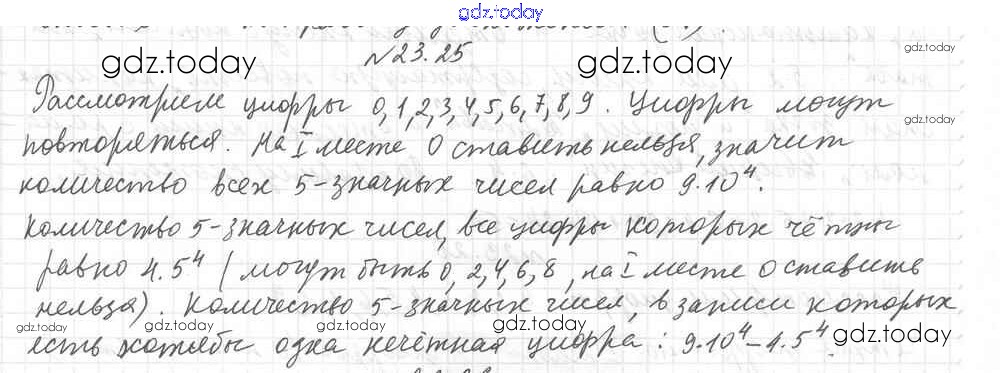 gdz.today
№23.25
gdz.today gdz.today gdz.today
Рассмотрим цифры 0,1,2,3,4,5,6,7,8,9. Цифры могут
повторяться. На I месте 0 ставить нельзя, значит
gdz.today gdz.today
количество всех 5-значных чисел равно 9·10⁴.
gdz.today gdz.today gdz.today
Количество 5-значных чисел, все цифры которых чётны
равно 4·5⁴ (могут быть 0, 2, 4, 6, 8, на I месте 0 ставить
gdz.today gdz.today
нельзя). Количество 5-значных чисел, в записи которых
gdz.today gdz.today gdz.today gdz.today gdz.today
есть хотя бы одна нечётная цифра: 9·10⁴-4·5⁴.
gdz.today